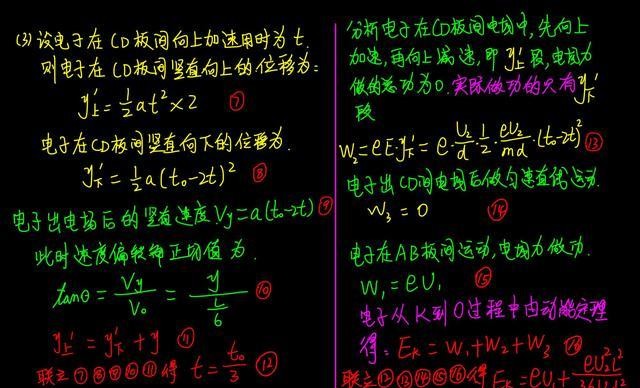 (3) 设电子在CD板间向上加速用时为t.
则电子在CD板间竖直向上的位移为:
y上' = 1/2 at² × 2 ⑦
电子在CD板间竖直向下的位移为.
y下' = 1/2 a(t₀-2t)² ⑧
电子出电场后的竖直速度Vy=a(t₀-2t) ⑨
此时速度偏转角正切值为.
tanθ = Vy/V₀ = y/(L/6) ⑩
y上' = y下' + y ⑪
联立⑦⑧⑨⑩⑪得 t = t₀/3 ⑫
分析电子在CD板间电场中,先向上
加速,再向上减速,即y上'段,电场力
做的总功为0.实际做功的只有y下'
段
W₂=eE·y下'=e·U₂/d·1/2·eU₂/md·(t₀-2t)² ⑬
电子出CD间电场后做匀速直线运动.
W₃=0 ⑭
电子在AB板间运动,电场力做功.
W₁=eU₁ ⑮
电子从K到O过程中由动能定理
得: Eₖ=W₁+W₂+W₃ ⑯
联立⑫⑬⑭⑮⑯得 Eₖ=eU₁+